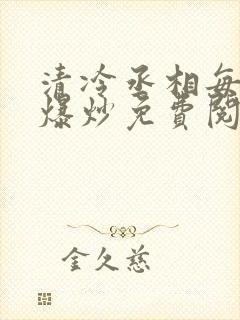 清冷丞相每
爆炒免费阅
金久慈